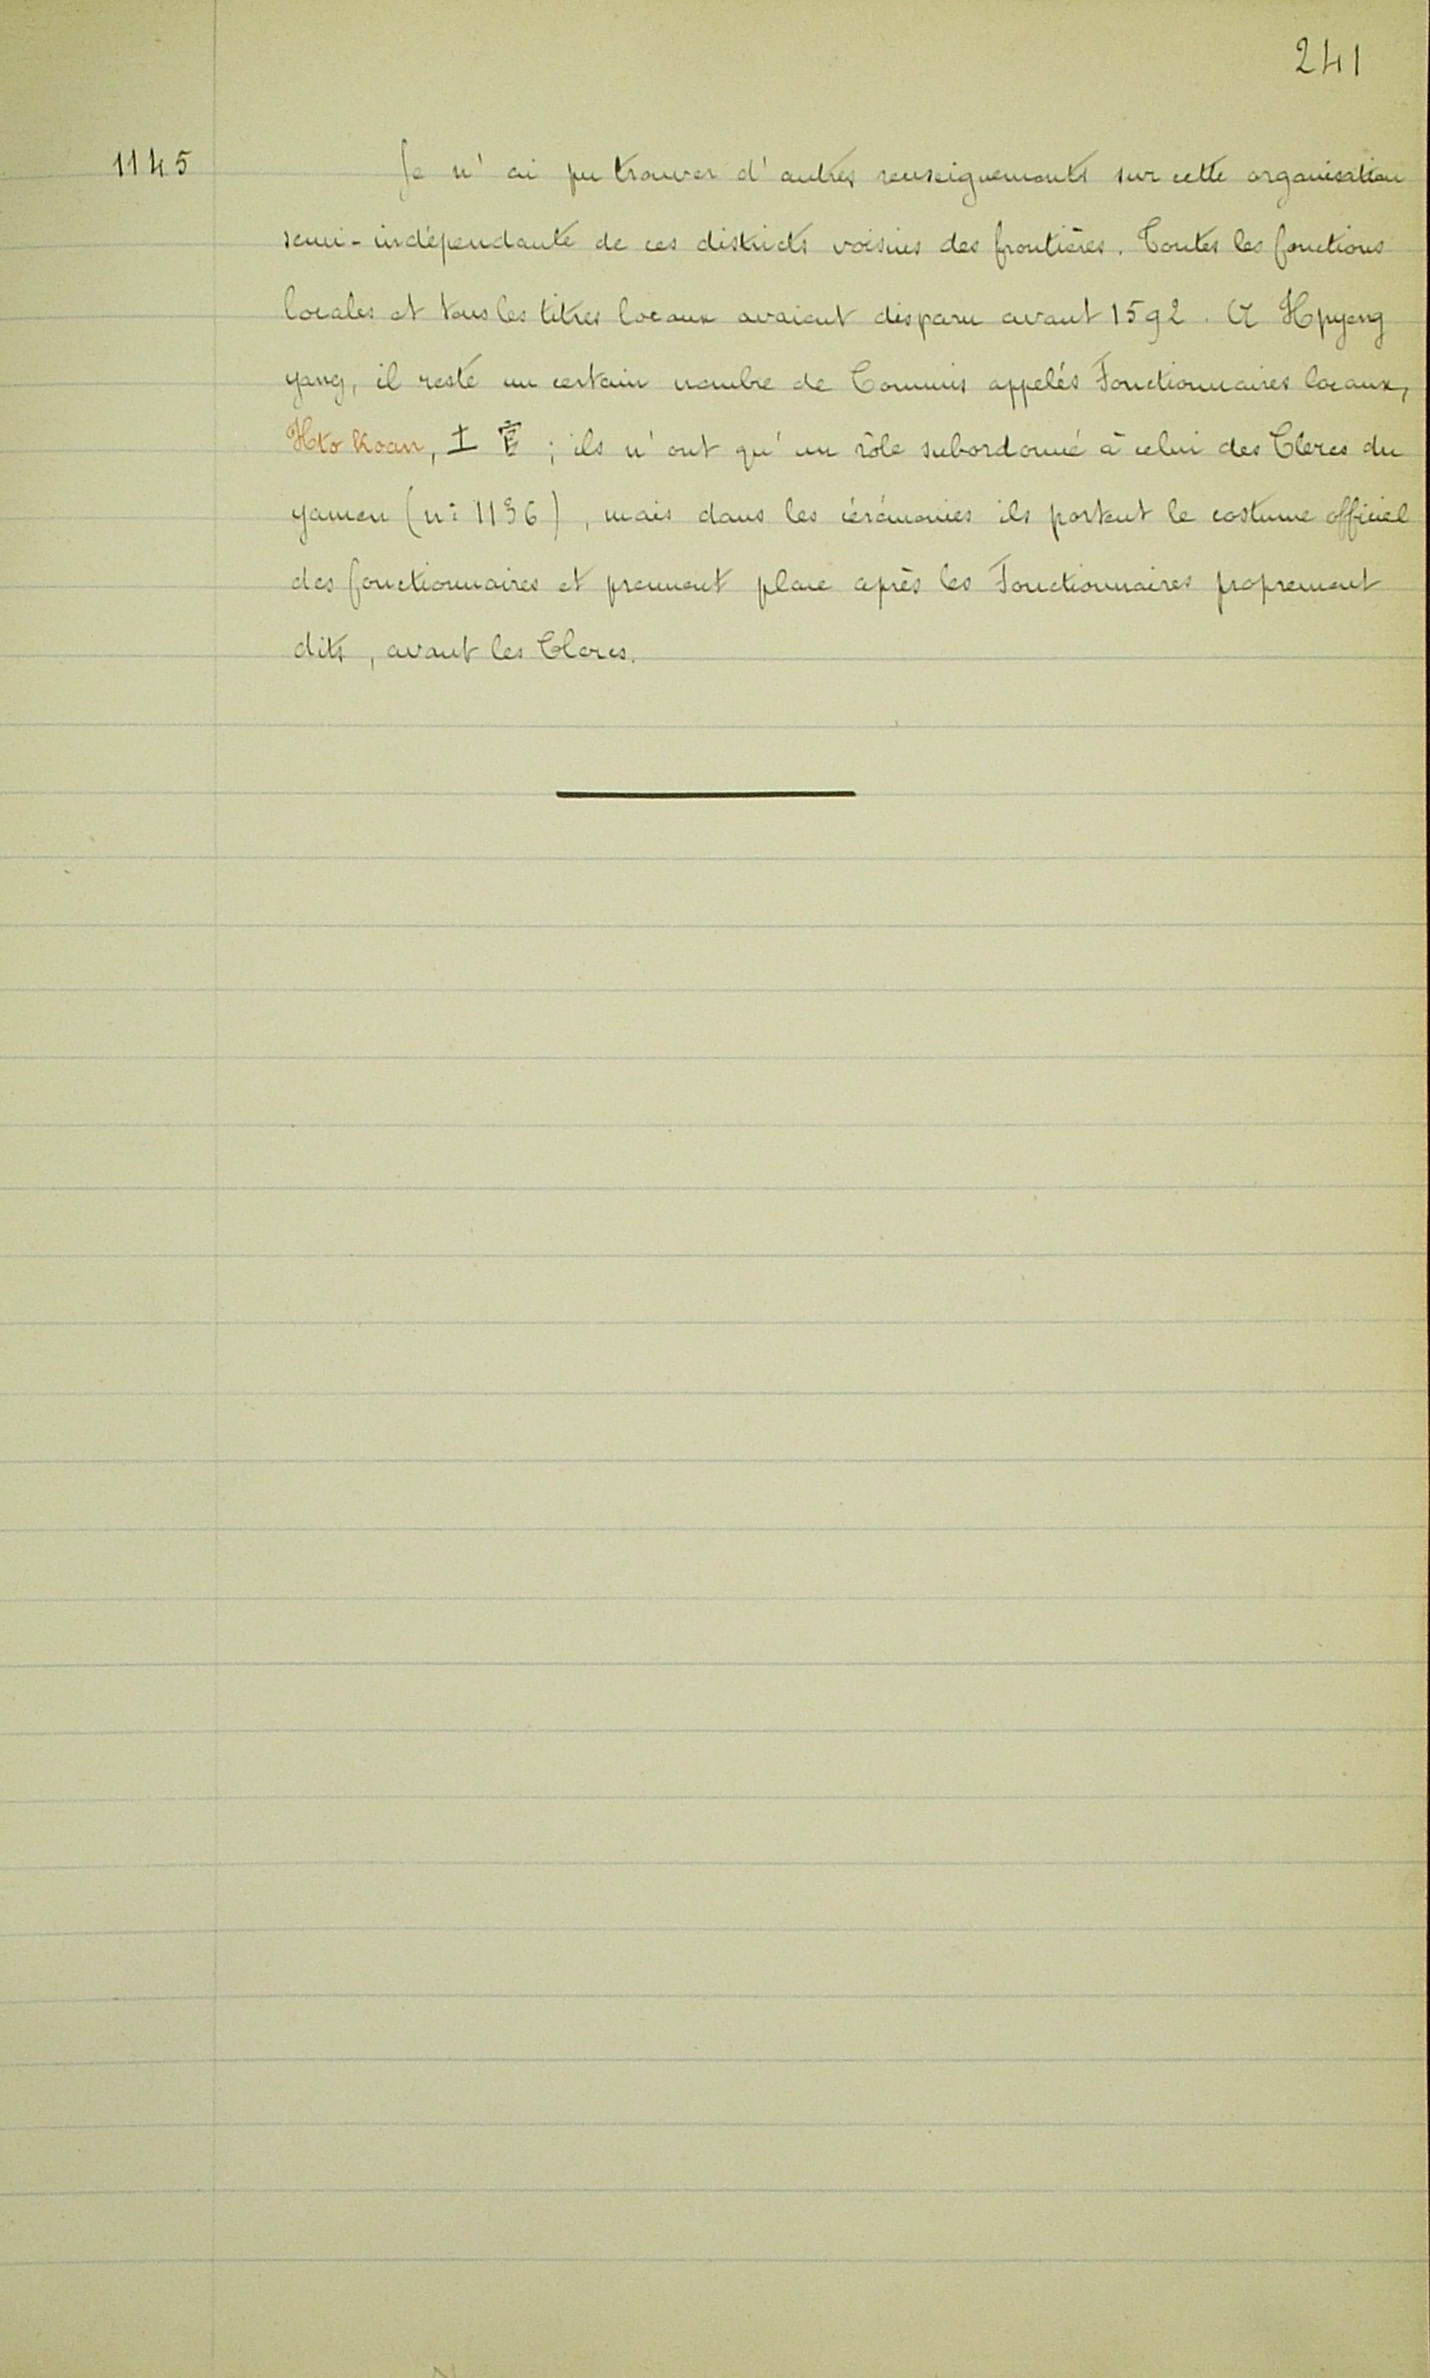 241
1145 Je n'ai pu trouver d'autres renseignements sur cette organisation
semi-indépendante de ces districts voisins des frontières. Toutes les fonctions
locales et tous les titres locaux avaient disparu avant 1592. A Hpyeng
yang, il reste un certain nombre de Commis appelés Fonctionnaires locaux,
Hto koan, 土官; ils n'ont qu'un rôle subordonné à celui des Clercs du
yamen (n: 1136), mais dans les cérémonies ils portent le costume officiel
des fonctionnaires et prennent place après les Fonctionnaires proprement
dits, avant les Clercs.